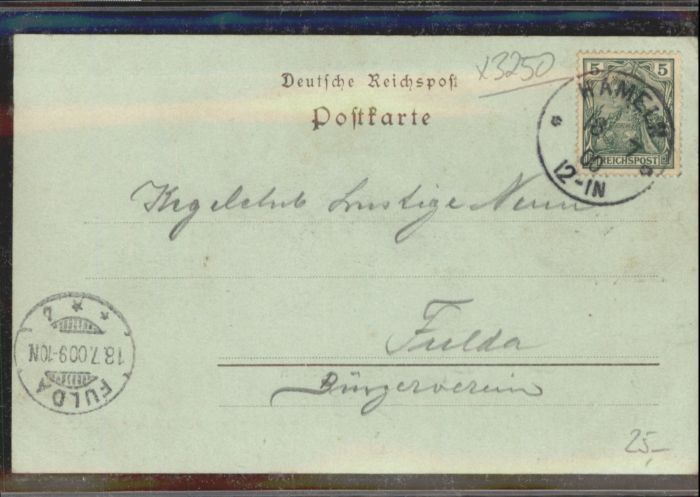 Deutsche Reichspost
Postkarte
x3250
5 5
REICHSPOST
HAMELN
18 7 00
12-1N
Kegelclub Lustige Neun
Fulda
Bürgerverein
FULDA
18.7.00.9-10N
25,-